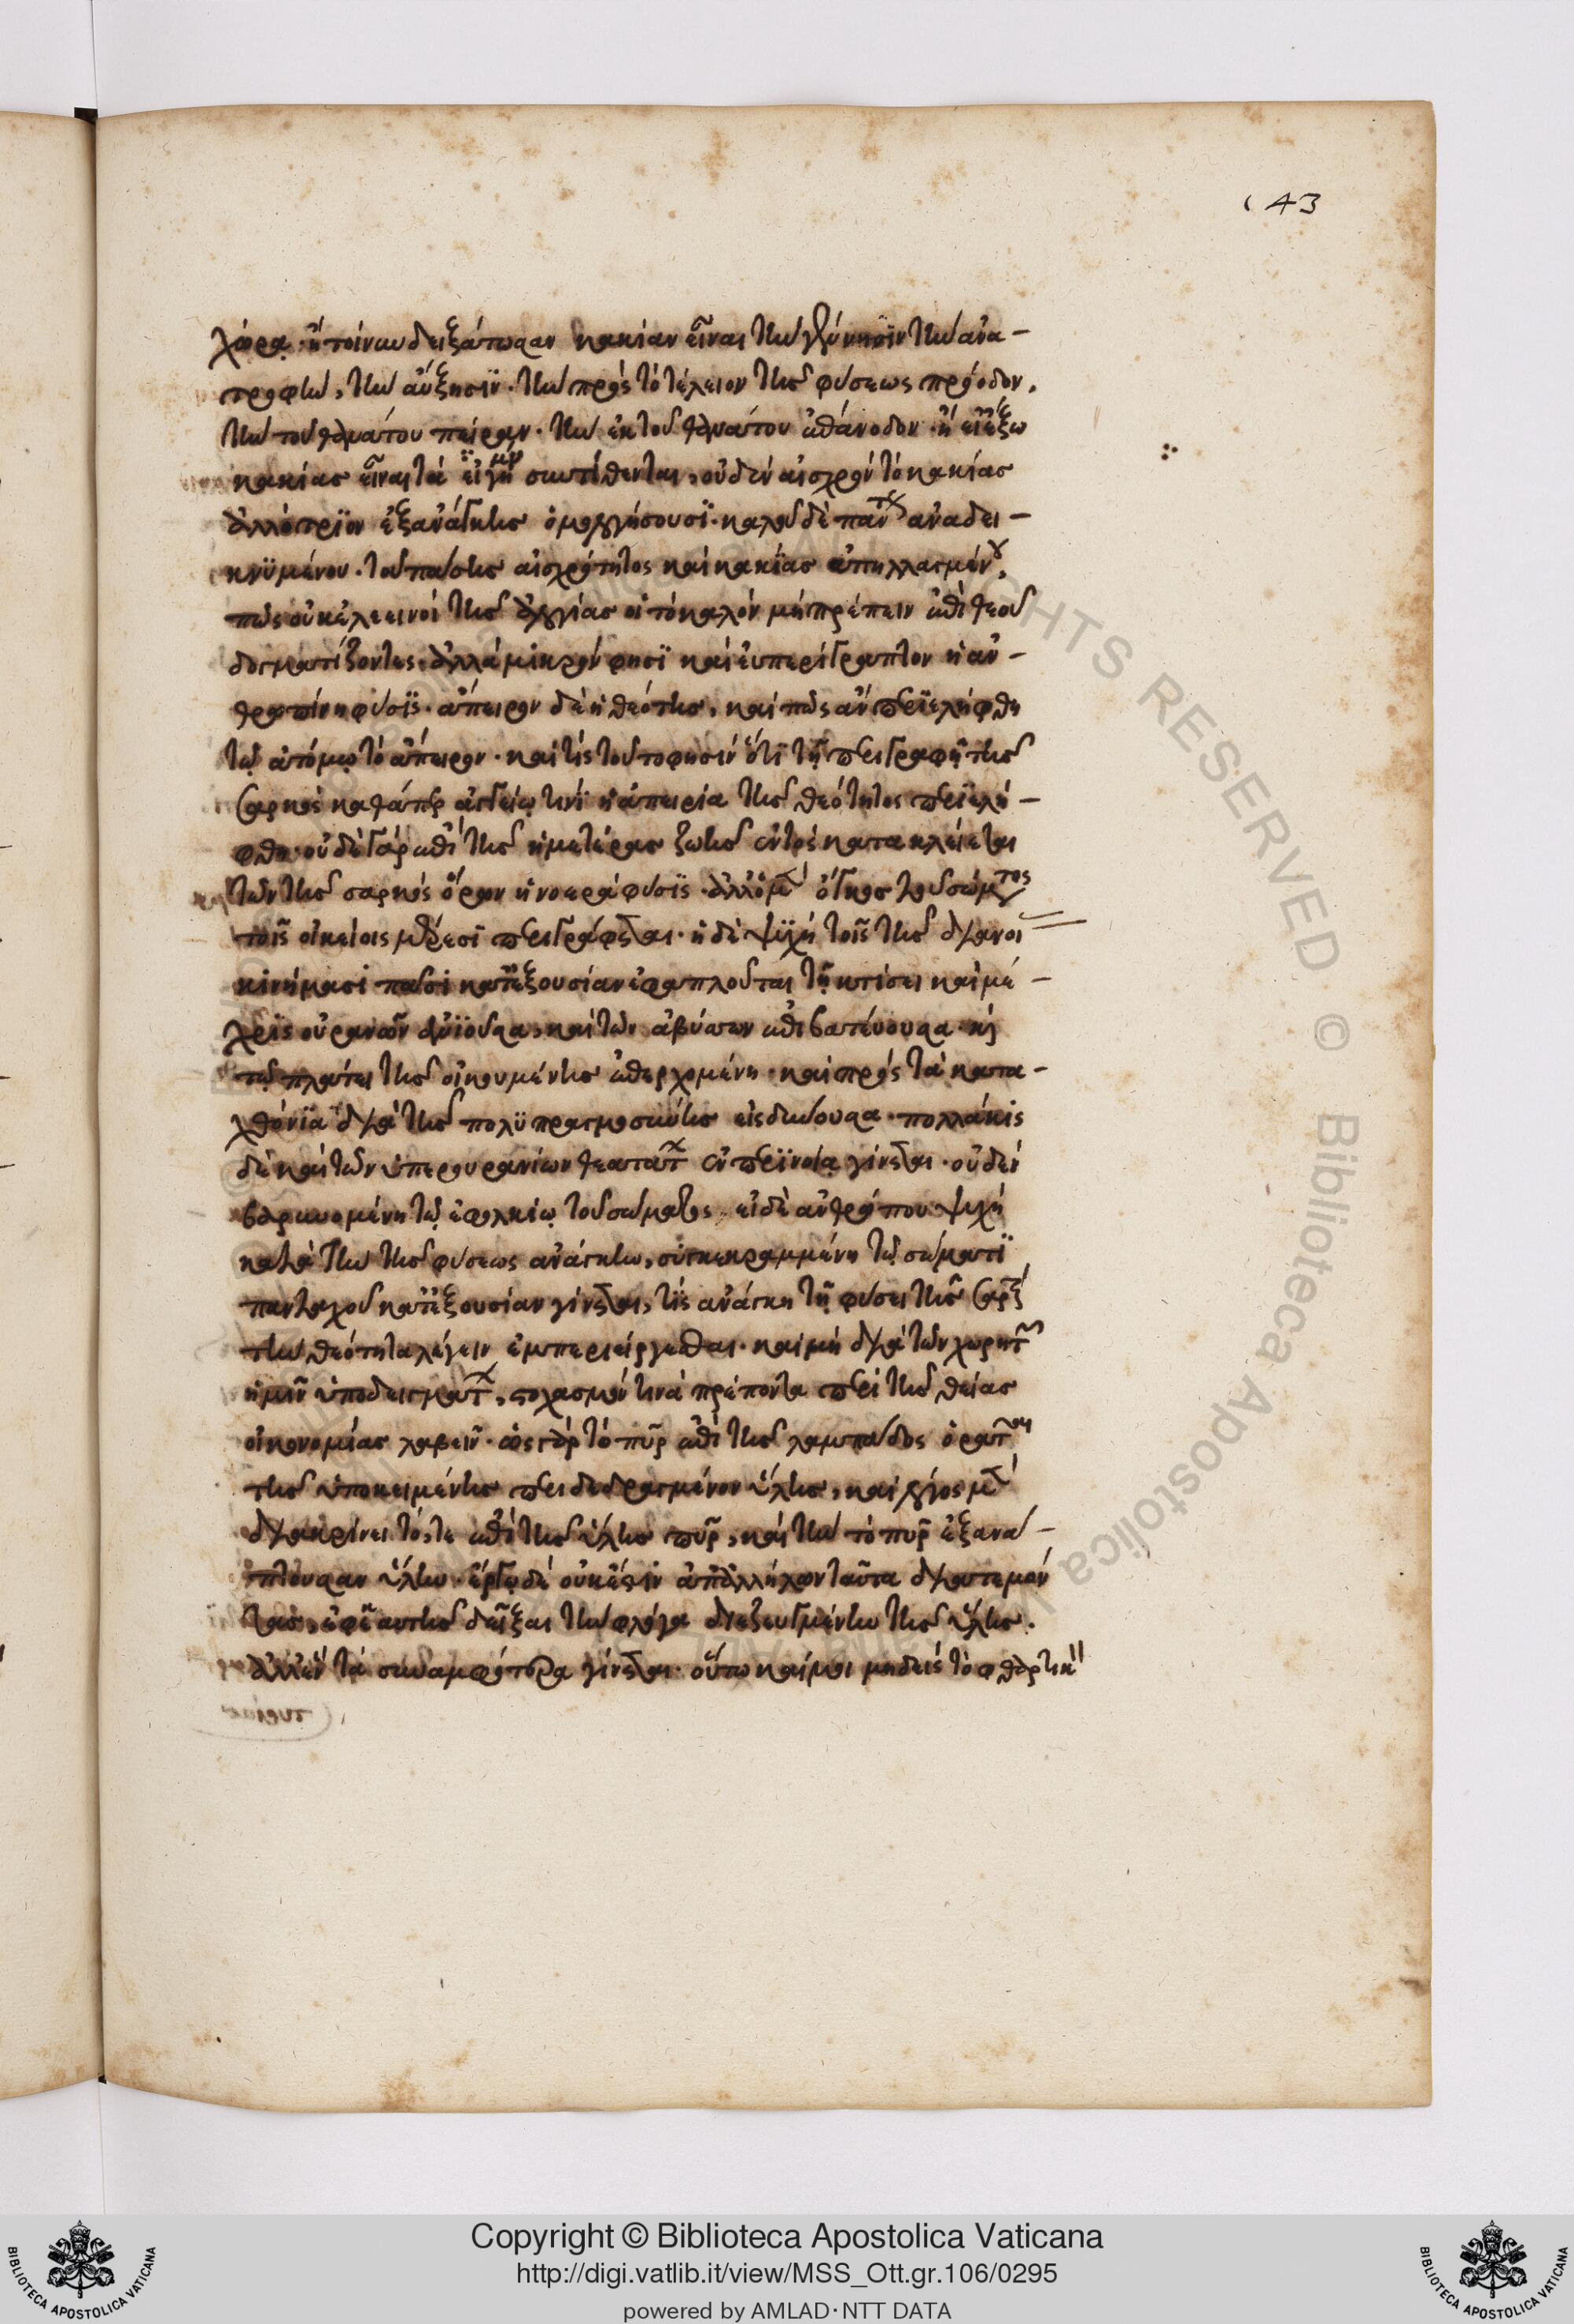 143
χώρα. ἢ τοίνυν δειξάτωσαν κακίαν εἶναι τὴν γέννησϊν τὴν ἀνα-
τροφὴν, τὴν αὔξησϊν. τὴν πρὸς τὸ τέλειον τῆς φύσεως πρόοδον,
τὴν τοῦ θανάτου πείραν. τὴν ἐκ τοῦ θανάτου ἐπάνοδον. ἢ εἰ ἔξω
κακίας εἶναι τὰ εἰρημένα συντίθενται, οὐδὲν αἰσχρὸν τὸ κακίας
ἀλλότρϊον ἐξ ἀνάγκης ὁμολογήσουσϊ. καλοῦ δὲ πάντως ἀναδει-
κνϋμένου. τοῦ πάσης αἰσχρότητος καὶ κακίας ἀπηλλαγμένου,
πῶς οὐκ ἐλεεινοὶ τῆς ἀλογίας οἱ τὸ καλὸν μὴ πρέπειν ἐπὶ θεοῦ
δογματίζοντες. ἀλλὰ μικρὸν φησϊ καὶ εὐπερίγραπτον ἡ ἀν-
θρωπίνη φύσϊς. ἄπειρον δὲ ἡ θεότης, καὶ πῶς ἂν περϊελήφθη
τῷ ἀτόμῳ τὸ ἄπειρον. καὶ τίς τοῦτο φησιν ὅτϊ τῇ περιγραφῇ τῆς
σαρκὸς καθάπερ ἀγγείῳ τινὶ ἡ ἀπειρία τῆς θεότητος περϊελή-
φθη. οὐδὲ γὰρ ἐπὶ τῆς ἡμετέρας ζωῆς ἐντὸς κατακλείεται
τῶν τῆς σαρκὸς ὅρων ἡ νοερὰ φύσϊς. ἀλλ' ὁ μὲν ὄγκος τοῦ σώματος
τοῖς οἰκείοις μέρεσϊ περιγράφεται. ἡ δὲ ψϋχὴ τοῖς τῆς διανοι
κινήμασϊ πάσϊ κατ' ἐξουσίαν ἐφαπλοῦται τῇ κτίσει καὶ μέ-
χρις οὐρανῶν ἀνϊοῦσα, καὶ τῶν ἀβύσσων ἐπιβατεύουσα. καὶ
τῷ πλάτει τῆς οἰκουμένης ἐπερχομένη. καὶ πρὸς τὰ κατα-
χθόνϊα διὰ τῆς πολϋπραγμοσύνης εἰσδύνουσα. πολλάκις
δὲ καὶ τῶν ὑπερουρανίων θεαμάτων ἐν περϊνοίᾳ γίνεται. οὐδὲν
βαρυνομένη τῷ ἐφολκίῳ τοῦ σώματος. εἰ δὲ ἀνθρώπου ψυχὴ
κατὰ τὴν τῆς φύσεως ἀνάγκην, συγκεκραμμένη τῷ σώματϊ
πανταχοῦ κατ' ἐξουσίαν γίνεται, τίς ἀνάγκη τῇ φύσει τῆς σαρκὸς
τὴν θεότητα λέγειν ἐμπεριείργεσθαι. καὶ μὴ διὰ τῶν χωρητῶν
ἡμῖν ὑποδειγμάτων, στοχασμόν τινα πρέποντα περὶ τῆς θείας
οἰκονομίας λαβεῖν. ὡς γὰρ τὸ πῦρ ἐπὶ τῆς λαμπάδος ὁρᾶται
τῆς ὑποκειμένης περιδεδραγμένον ὕλης, καὶ λόγος μὲν
διακρίνει τό, τε ἐπὶ τῆς ὕλης πῦρ, καὶ τὴν τὸ πῦρ ἐξανά-
πτουσαν ὕλην. ἔργῳ δὲ οὐκ ἔστιν ἀπ' ἀλλήλων ταῦτα διατεμόν
τας, ἐφ' ἑαυτῆς δεῖξαι τὴν φλόγα διεζευγμένην τῆς ὕλης.
ἀλλ' ἓν τὰ συναμφότερα γίνεται. οὕτω καί μοι μηδεὶς τὸ φθαρτικὸν
Copyright © Biblioteca Apostolica Vaticana
http://digi.vatlib.it/view/MSS_Ott.gr.106/0295
powered by AMLAD·NTT DATA
BIBLIOTECA APOSTOLICA VATICANA
BIBLIOTECA APOSTOLICA VATICANA